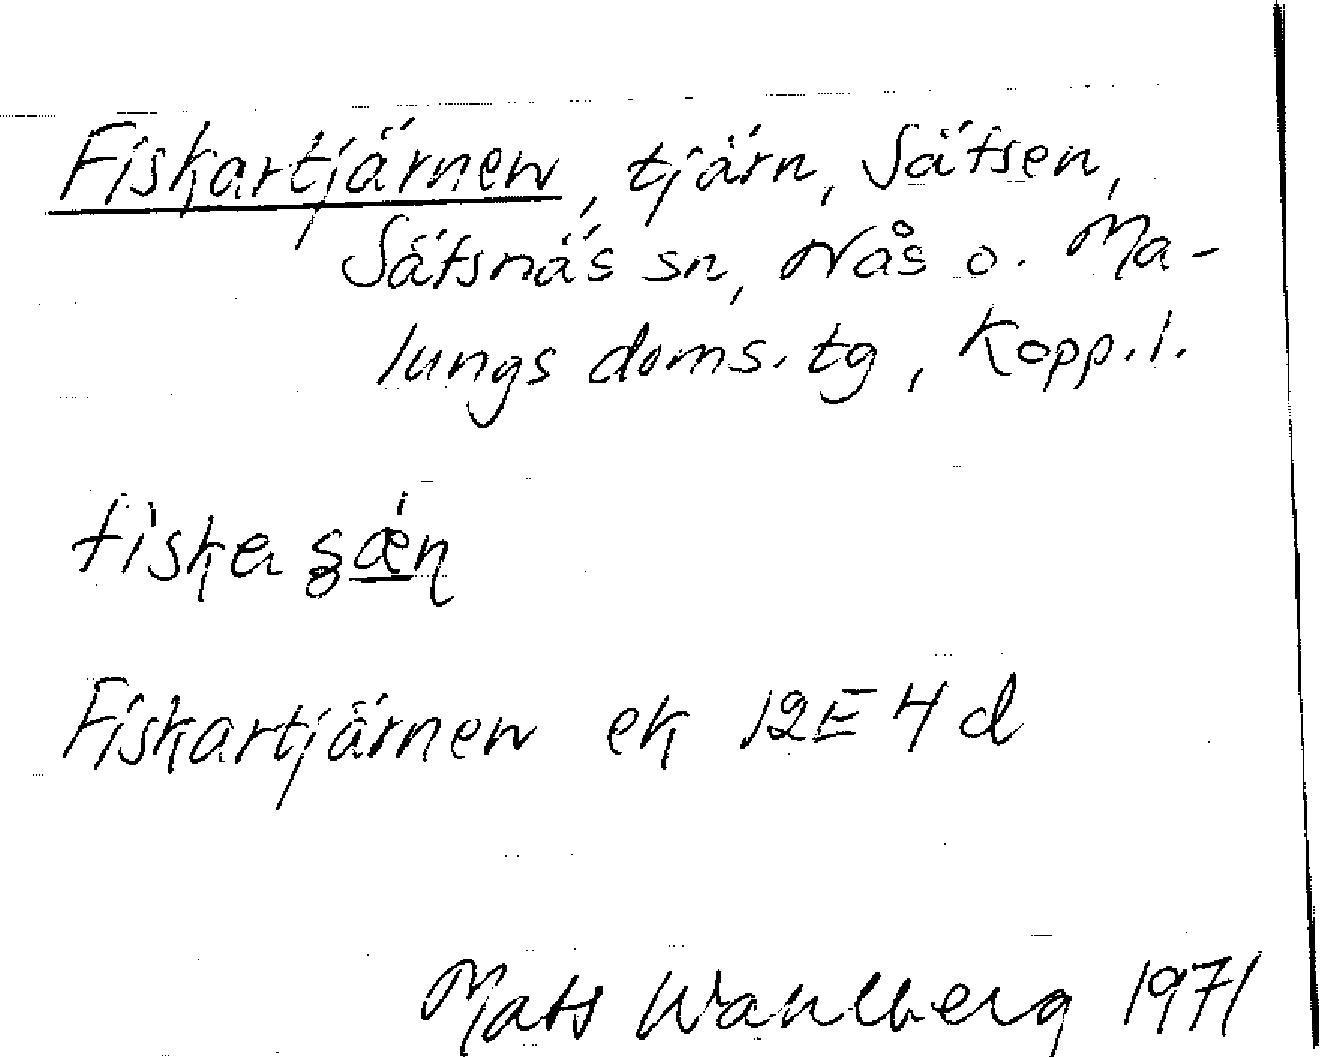 Fiskartjärnen, tjärn, Säfsen,
Säfsnäs sn, Nås o. Ma-
lungs doms. tg, Kopp. l.
Fiskartjärnen ek 12E 4 d
Mats Wahlberg 1971